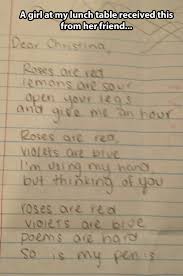 A girl at my lunch table received this
from her friend...
Dear Christina,
Roses are red
lemons are sour
open your legs
and give me an hour
Roses are red,
violets are blue
I'm using my hand
but thinking of you
roses are red
violets are blue
poems are hard
so is my penis